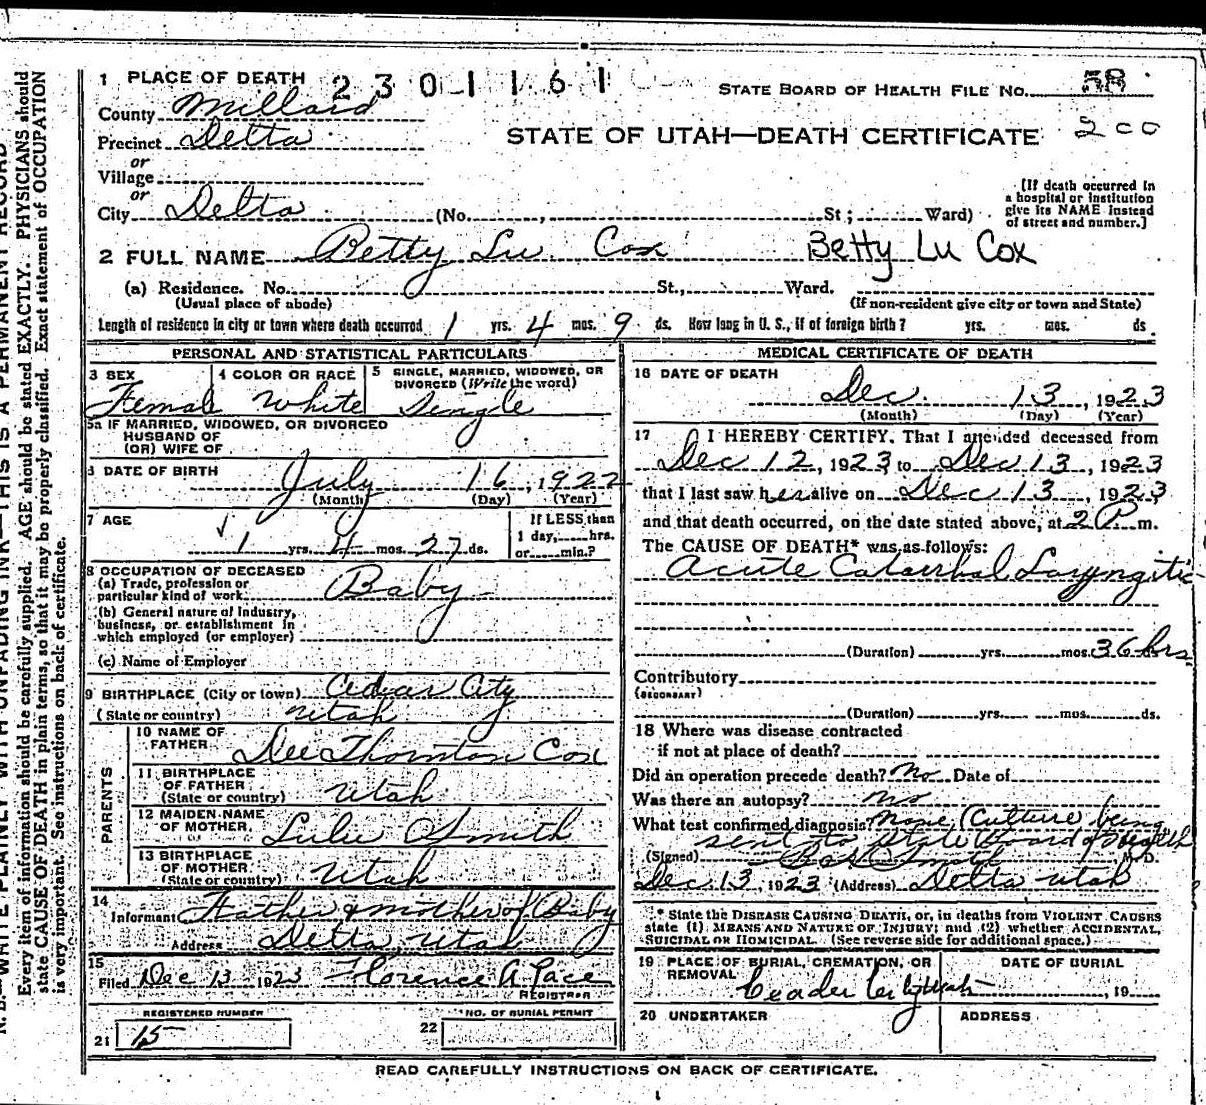 1 PLACE OF DEATH 2301161
STATE BOARD OF HEALTH FILE No. 58
County Millard
Precinct Delta
STATE OF UTAH—DEATH CERTIFICATE 200
or
Village
or
City Delta (No. , St; Ward)
[If death occurred in a hospital or institution give its NAME instead of street and number.]
2 FULL NAME Betty Lu Cox Betty Lu Cox
(a) Residence. No. St., Ward.
(Usual place of abode) (If non-resident give city or town and State)
Length of residence in city or town where death occurred 1 yrs. 4 mos. 9 ds. How long in U. S., if of foreign birth? yrs. mos. ds.
PERSONAL AND STATISTICAL PARTICULARS
3 SEX 4 COLOR OR RACE 5 SINGLE, MARRIED, WIDOWED, OR DIVORCED (Write the word)
Female White Single
5a IF MARRIED, WIDOWED, OR DIVORCED
HUSBAND OF
(OR) WIFE OF
6 DATE OF BIRTH July 16, 1922
(Month) (Day) (Year)
7 AGE
1 yrs. 4 mos. 27 ds.
If LESS than
1 day, hrs.
or min.?
8 OCCUPATION OF DECEASED
(a) Trade, profession or
particular kind of work Baby
(b) General nature of industry,
business, or establishment in
which employed (or employer)
(c) Name of Employer
9 BIRTHPLACE (City or town) Cedar City
(State or country) Utah
PARENTS
10 NAME OF
FATHER Dee Thornton Cox
11 BIRTHPLACE
OF FATHER
(State or country) Utah
12 MAIDEN NAME
OF MOTHER Lulu Smith
13 BIRTHPLACE
OF MOTHER
(State or country) Utah
14
Informant Father & mother of Baby
Address Delta, Utah
15
Filed Dec 13 1923 Florence A Pace
REGISTRAR
REGISTERED NUMBER
21 15
NO. OF BURIAL PERMIT
22
MEDICAL CERTIFICATE OF DEATH
16 DATE OF DEATH
Dec. 13, 1923
(Month) (Day) (Year)
17 I HEREBY CERTIFY, That I attended deceased from
Dec 12, 1923 to Dec 13, 1923
that I last saw her alive on Dec 13, 1923
and that death occurred, on the date stated above, at 2 P m.
The CAUSE OF DEATH* was as follows:
Acute Catarrhal Laryngitis
(Duration) yrs. mos. 36 hrs.
Contributory
(SECONDARY)
(Duration) yrs. mos. ds.
18 Where was disease contracted
if not at place of death?
Did an operation precede death? No Date of
Was there an autopsy? no
What test confirmed diagnosis? none (Culture being
sent to State Board of Health
(Signed) Smith M. D.
Dec. 13, 1923 (Address) Delta Utah
* State the DISEASE CAUSING DEATH, or, in deaths from VIOLENT CAUSES
state (1) MEANS AND NATURE OF INJURY; and (2) whether ACCIDENTAL,
SUICIDAL or HOMICIDAL. (See reverse side for additional space.)
19 PLACE OF BURIAL, CREMATION, OR
REMOVAL
DATE OF BURIAL
Ceader City Utah , 19
20 UNDERTAKER ADDRESS
READ CAREFULLY INSTRUCTIONS ON BACK OF CERTIFICATE.
N. B.—WRITE PLAINLY WITH UNFADING INK—THIS IS A PERMANENT RECORD
Every item of information should be carefully supplied. AGE should be stated EXACTLY. PHYSICIANS should
state CAUSE OF DEATH in plain terms, so that it may be properly classified. Exact statement of OCCUPATION
is very important. See instructions on back of certificate.